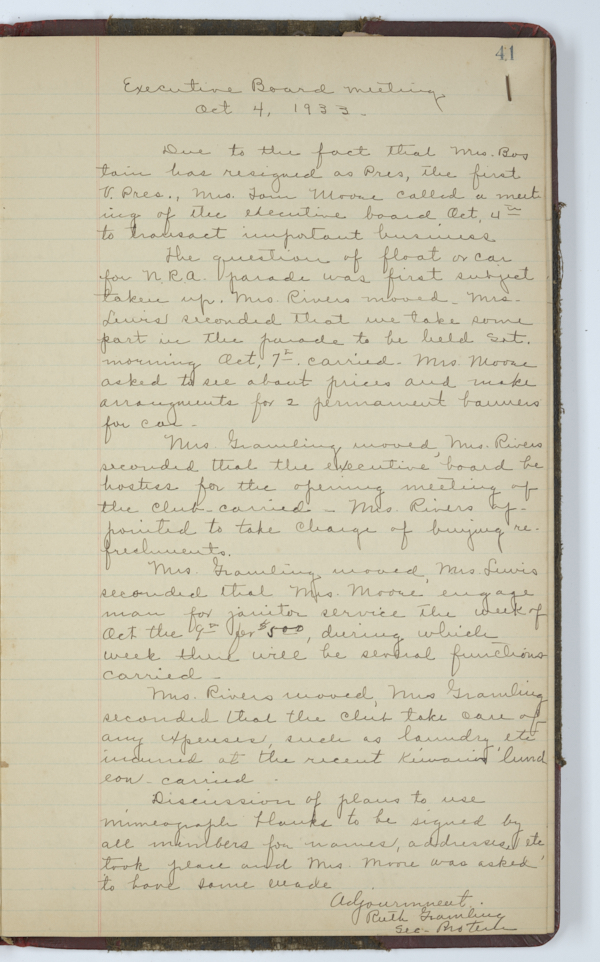 41
Executive Board meeting
Oct 4, 1933.
Due to the fact that Mrs. Bos
tain has resigned as Pres, the first
V. Pres., Mrs. Tom Moore called a meet
ing of the executive board Oct, 4th
to transact important business
The question of float or car
for N.R.A. parade was first subject
taken up. Mrs. Rivers moved - Mrs.
Lewis seconded that we take some
part in the parade to be held Sat.
morning Oct, 7th. carried - Mrs. Moore
asked to see about prices and make
arrangments for 2 permanent banners
for car -
Mrs. Gramling moved, Mrs. Rivers
seconded that the executive board be
hostess for the opening meeting of
the club - carried - Mrs. Rivers ap-
pointed to take charge of buying re-
freshments.
Mrs. Gramling moved, Mrs. Lewis
seconded that Mrs. Moore engage
man for janitor service the week of
Oct the 9th for $5.00, during which
week there will be several functions
carried -
Mrs. Rivers moved, Mrs Gramling
seconded that the club take care of
any expenses, such as laundry etc
incurred at the recent Kiwanis lunch
eon - carried.
Discussion of plans to use
mimeograph blanks to be signed by
all members for names, addresses, etc
took place and Mrs. Moore was asked
to have some made
Adjournment.
Ruth Gramling
Sec. Protem